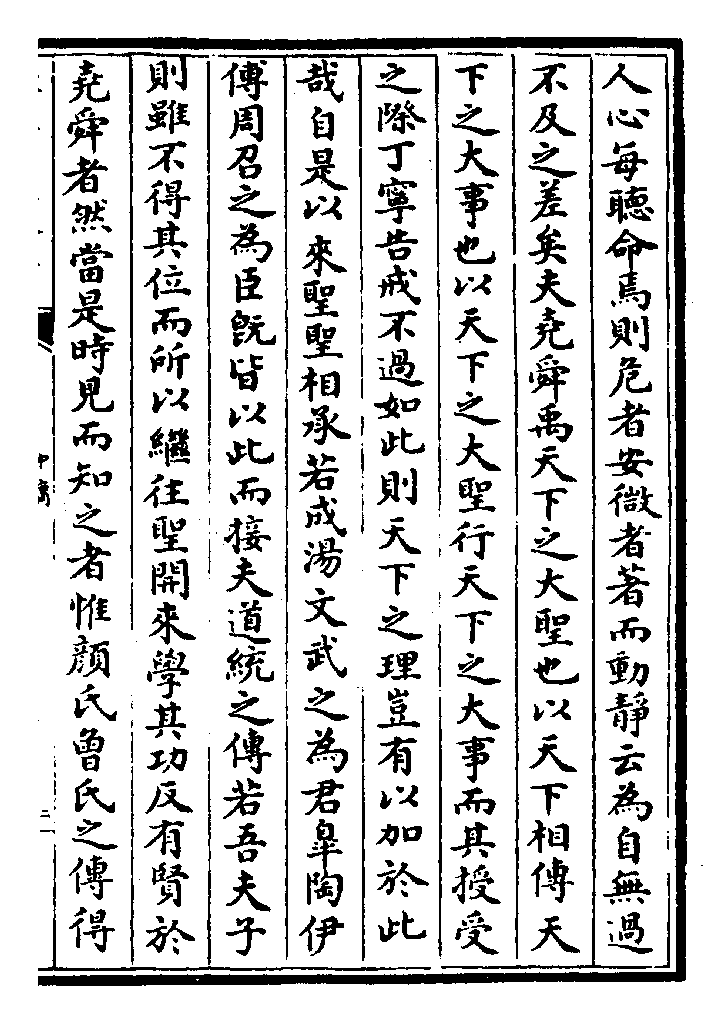 人心每聽命焉則危者安微者著而動靜云為自無過
不及之差矣夫堯舜禹天下之大聖也以天下相傳天
下之大事也以天下之大聖行天下之大事而其授受
之際丁寧告戒不過如此則天下之理豈有以加於此
哉自是以來聖聖相承若成湯文武之為君臯陶伊
傅周召之為臣既皆以此而接夫道統之傳若吾夫子
則雖不得其位而所以繼往聖開來學其功反有賢於
堯舜者然當是時見而知之者惟顔氏曾氏之傳得